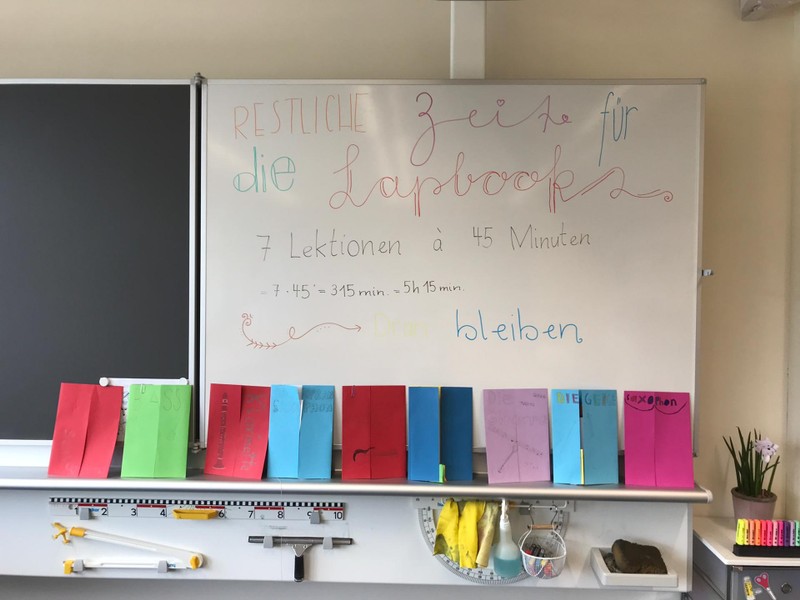 RESTLICHE Zeit für
die Lapbooks
7 Lektionen à 45 Minuten
= 7 · 45' = 315 min. = 5h 15 min.
bleiben
DIE GEIGE
saxophon
2 3 4 5 6 7 8 9 10